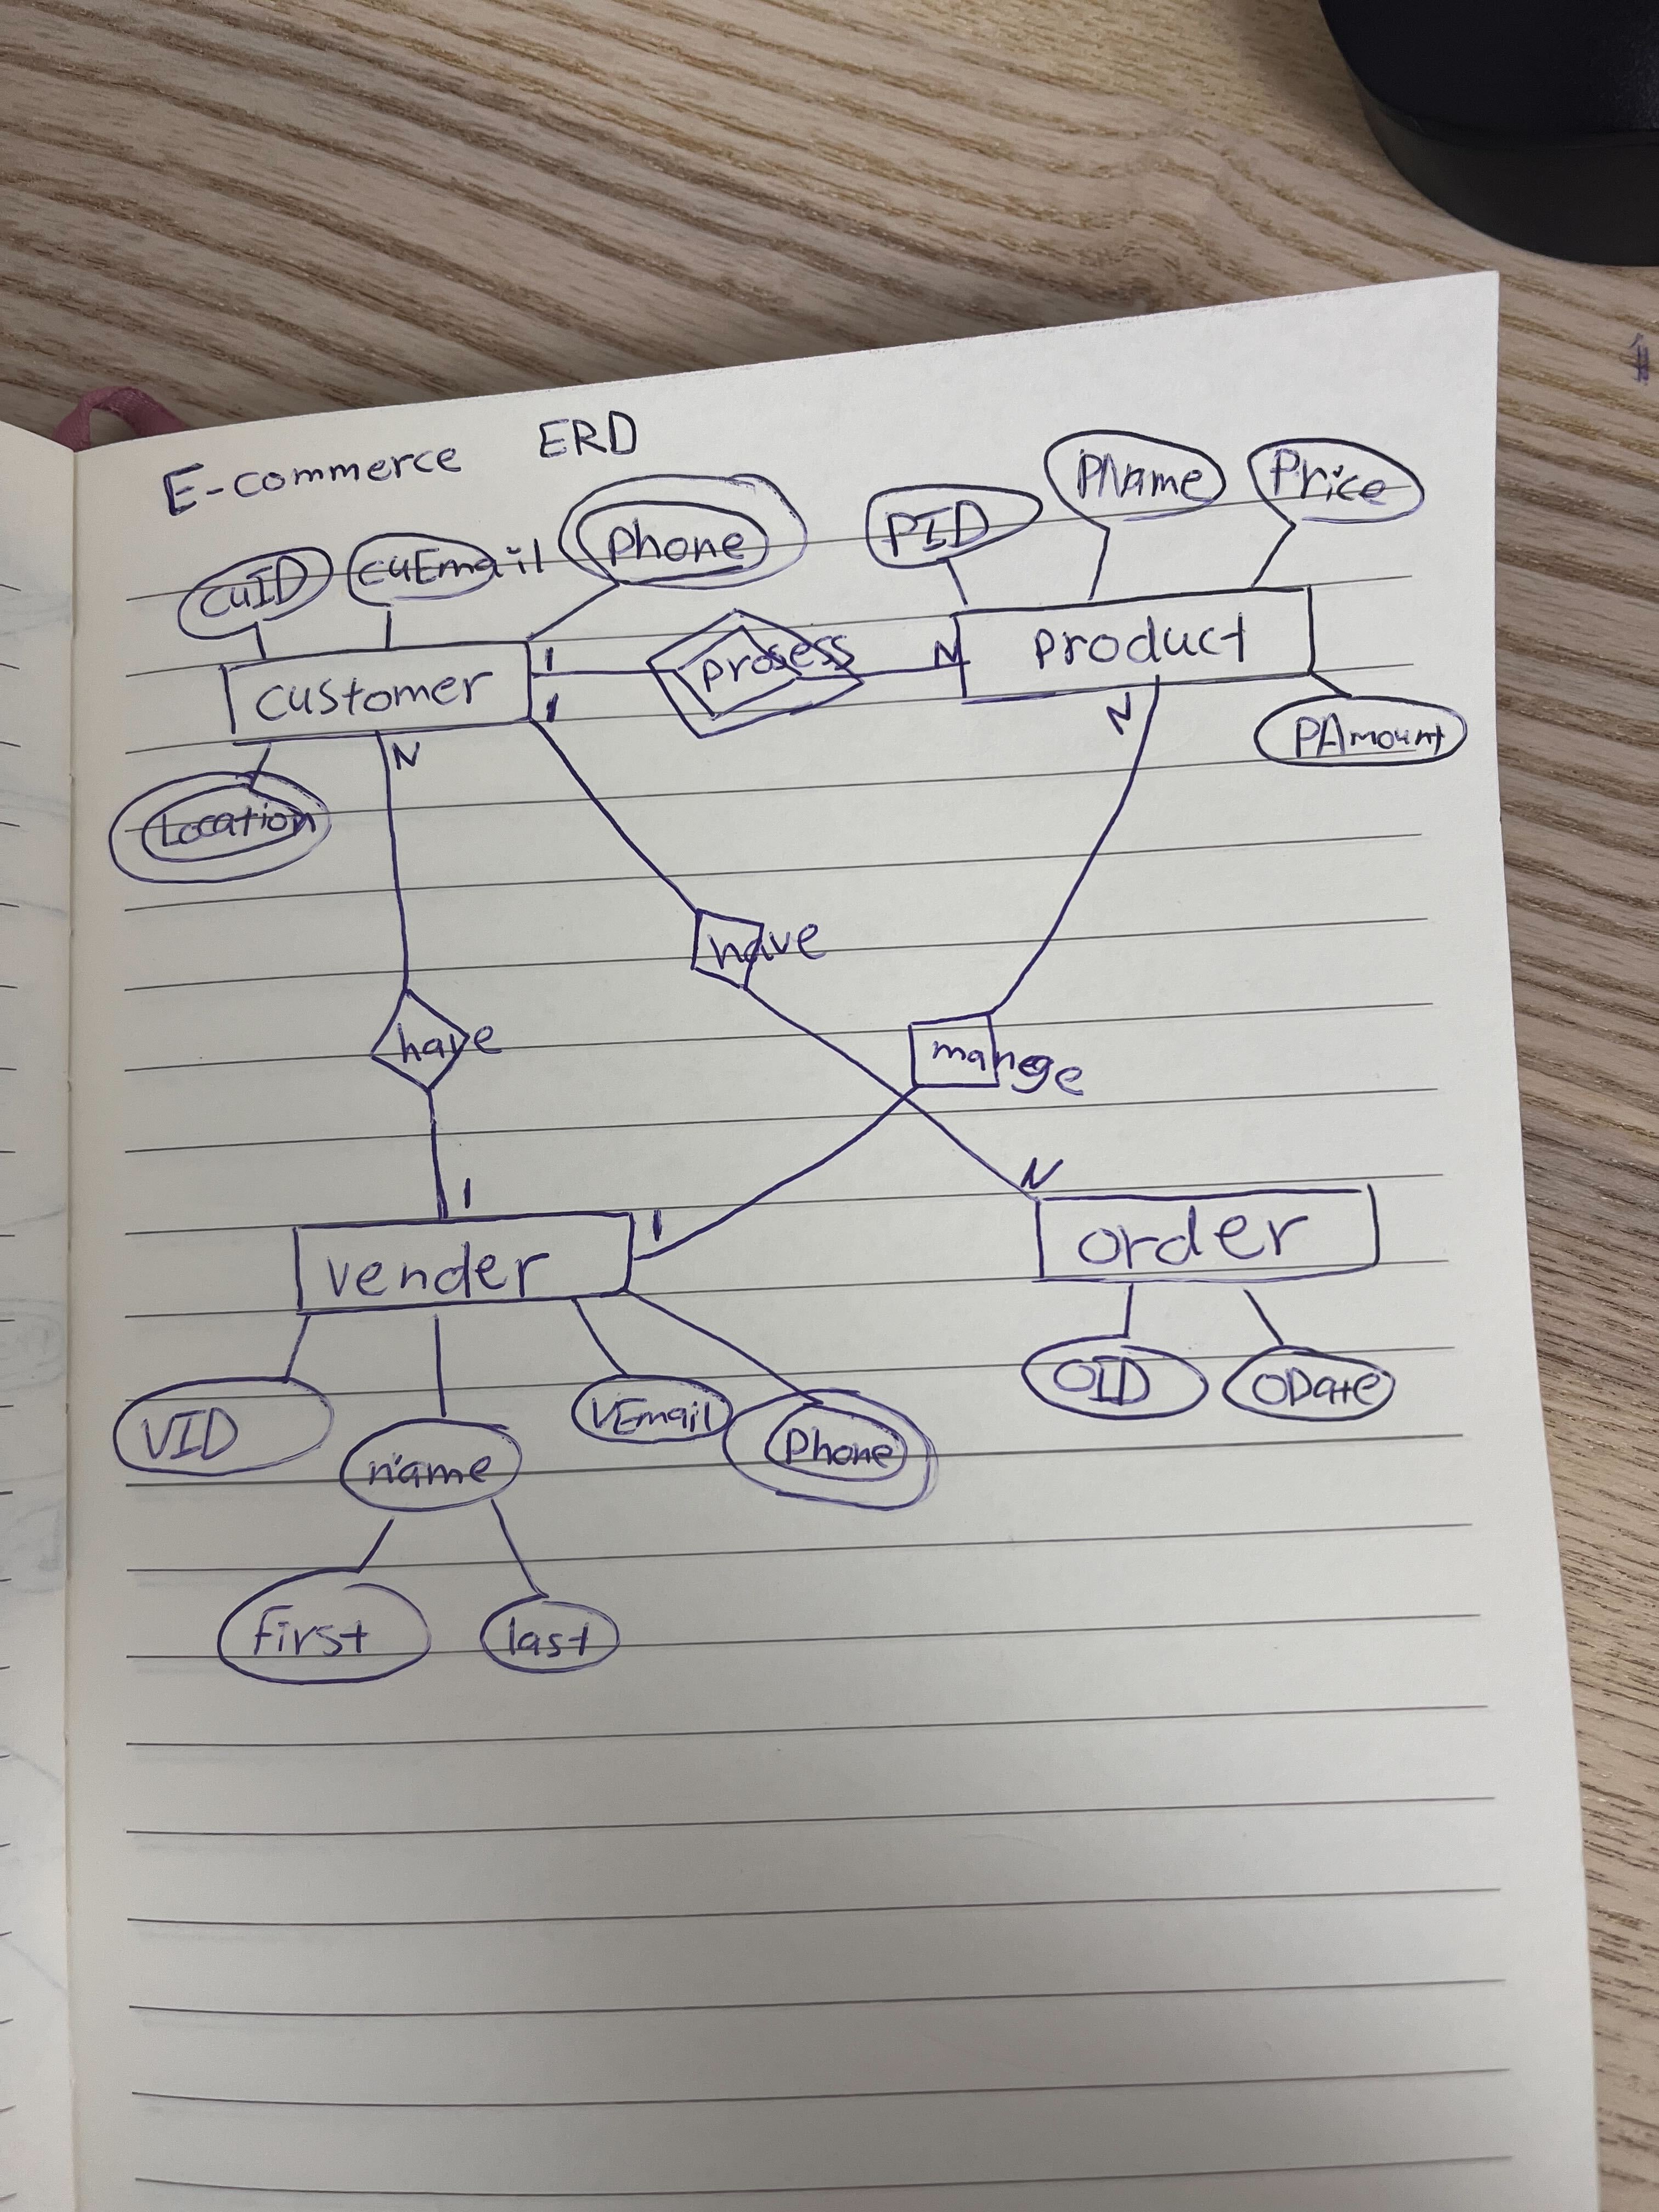 E-commerce ERD
cuID cuEmail Phone PID PName Price
customer 1 prosess N product
1
N N PAmount
Location
have
have manege
N
1 1
vender order
VID name VEmail Phone OID ODate
first last